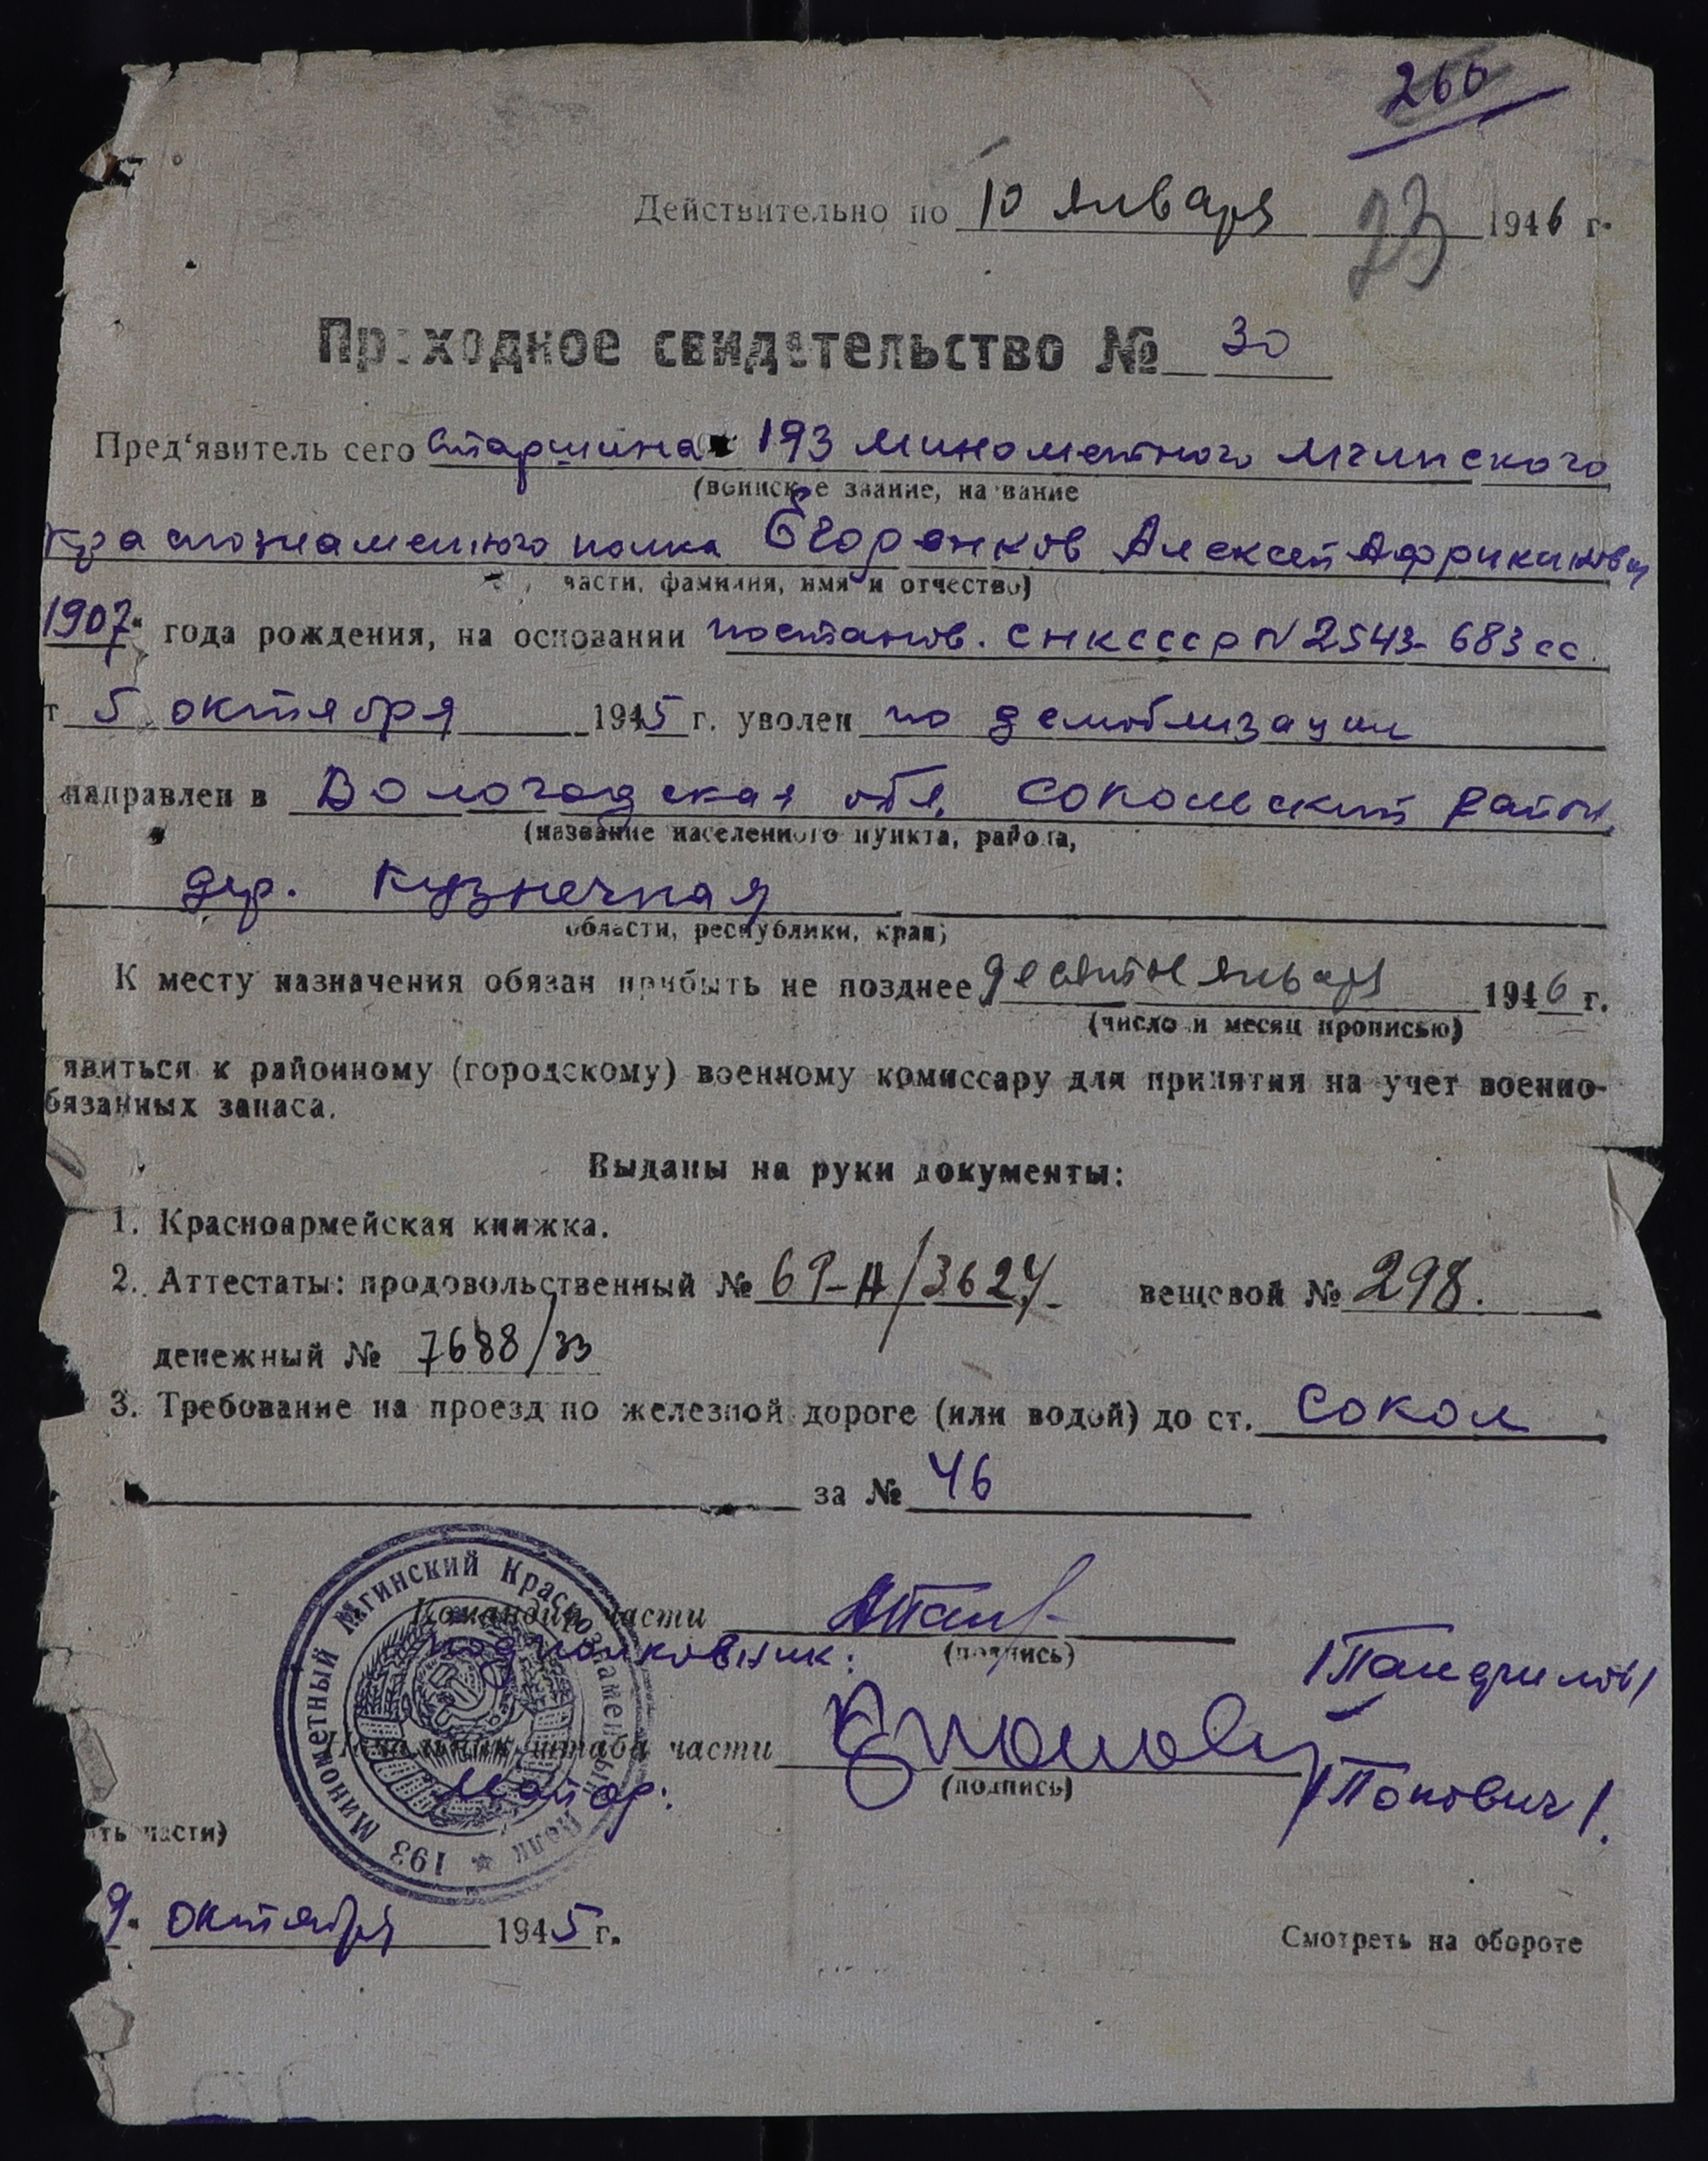 260
Действительно по 10 января 1946 г.
23
Проходное свидетельство № 30
Пред‘явитель сего старшина 193 минометного Мгинского
(воинское звание, название
краснознаменного полка Егоренков Алексей Африканович
части, фамилия, имя и отчество)
1907 года рождения, на основании постанов. СНК СССР N 2543-683сс.
т 5 октября 1945 г. уволен по демоблизации
направлен в Вологодская обл. Сокольский район,
(название населенного пункта, района,
дер. Кузнечная
области, республики, края)
К месту назначения обязан прибыть не позднее десятое января 1946 г.
(число и месяц прописью)
явиться к районному (городскому) военному комиссару для принятия на учет военно-
бязанных запаса.
Выданы на руки документы:
1. Красноармейская книжка.
2. Аттестаты: продовольственный № вещевой № 298.
денежный № 7688/33
3. Требование на проезд по железной дороге (или водой) до ст. Сокол
за № 46
193 Минометный Мгинский Краснознаменный полк
Командир части
подполковник: (подпись)
Начальник штаба части
майор: (подпись) /Попович/.
ть части)
9 октября 1945 г.
Смотреть на обороте